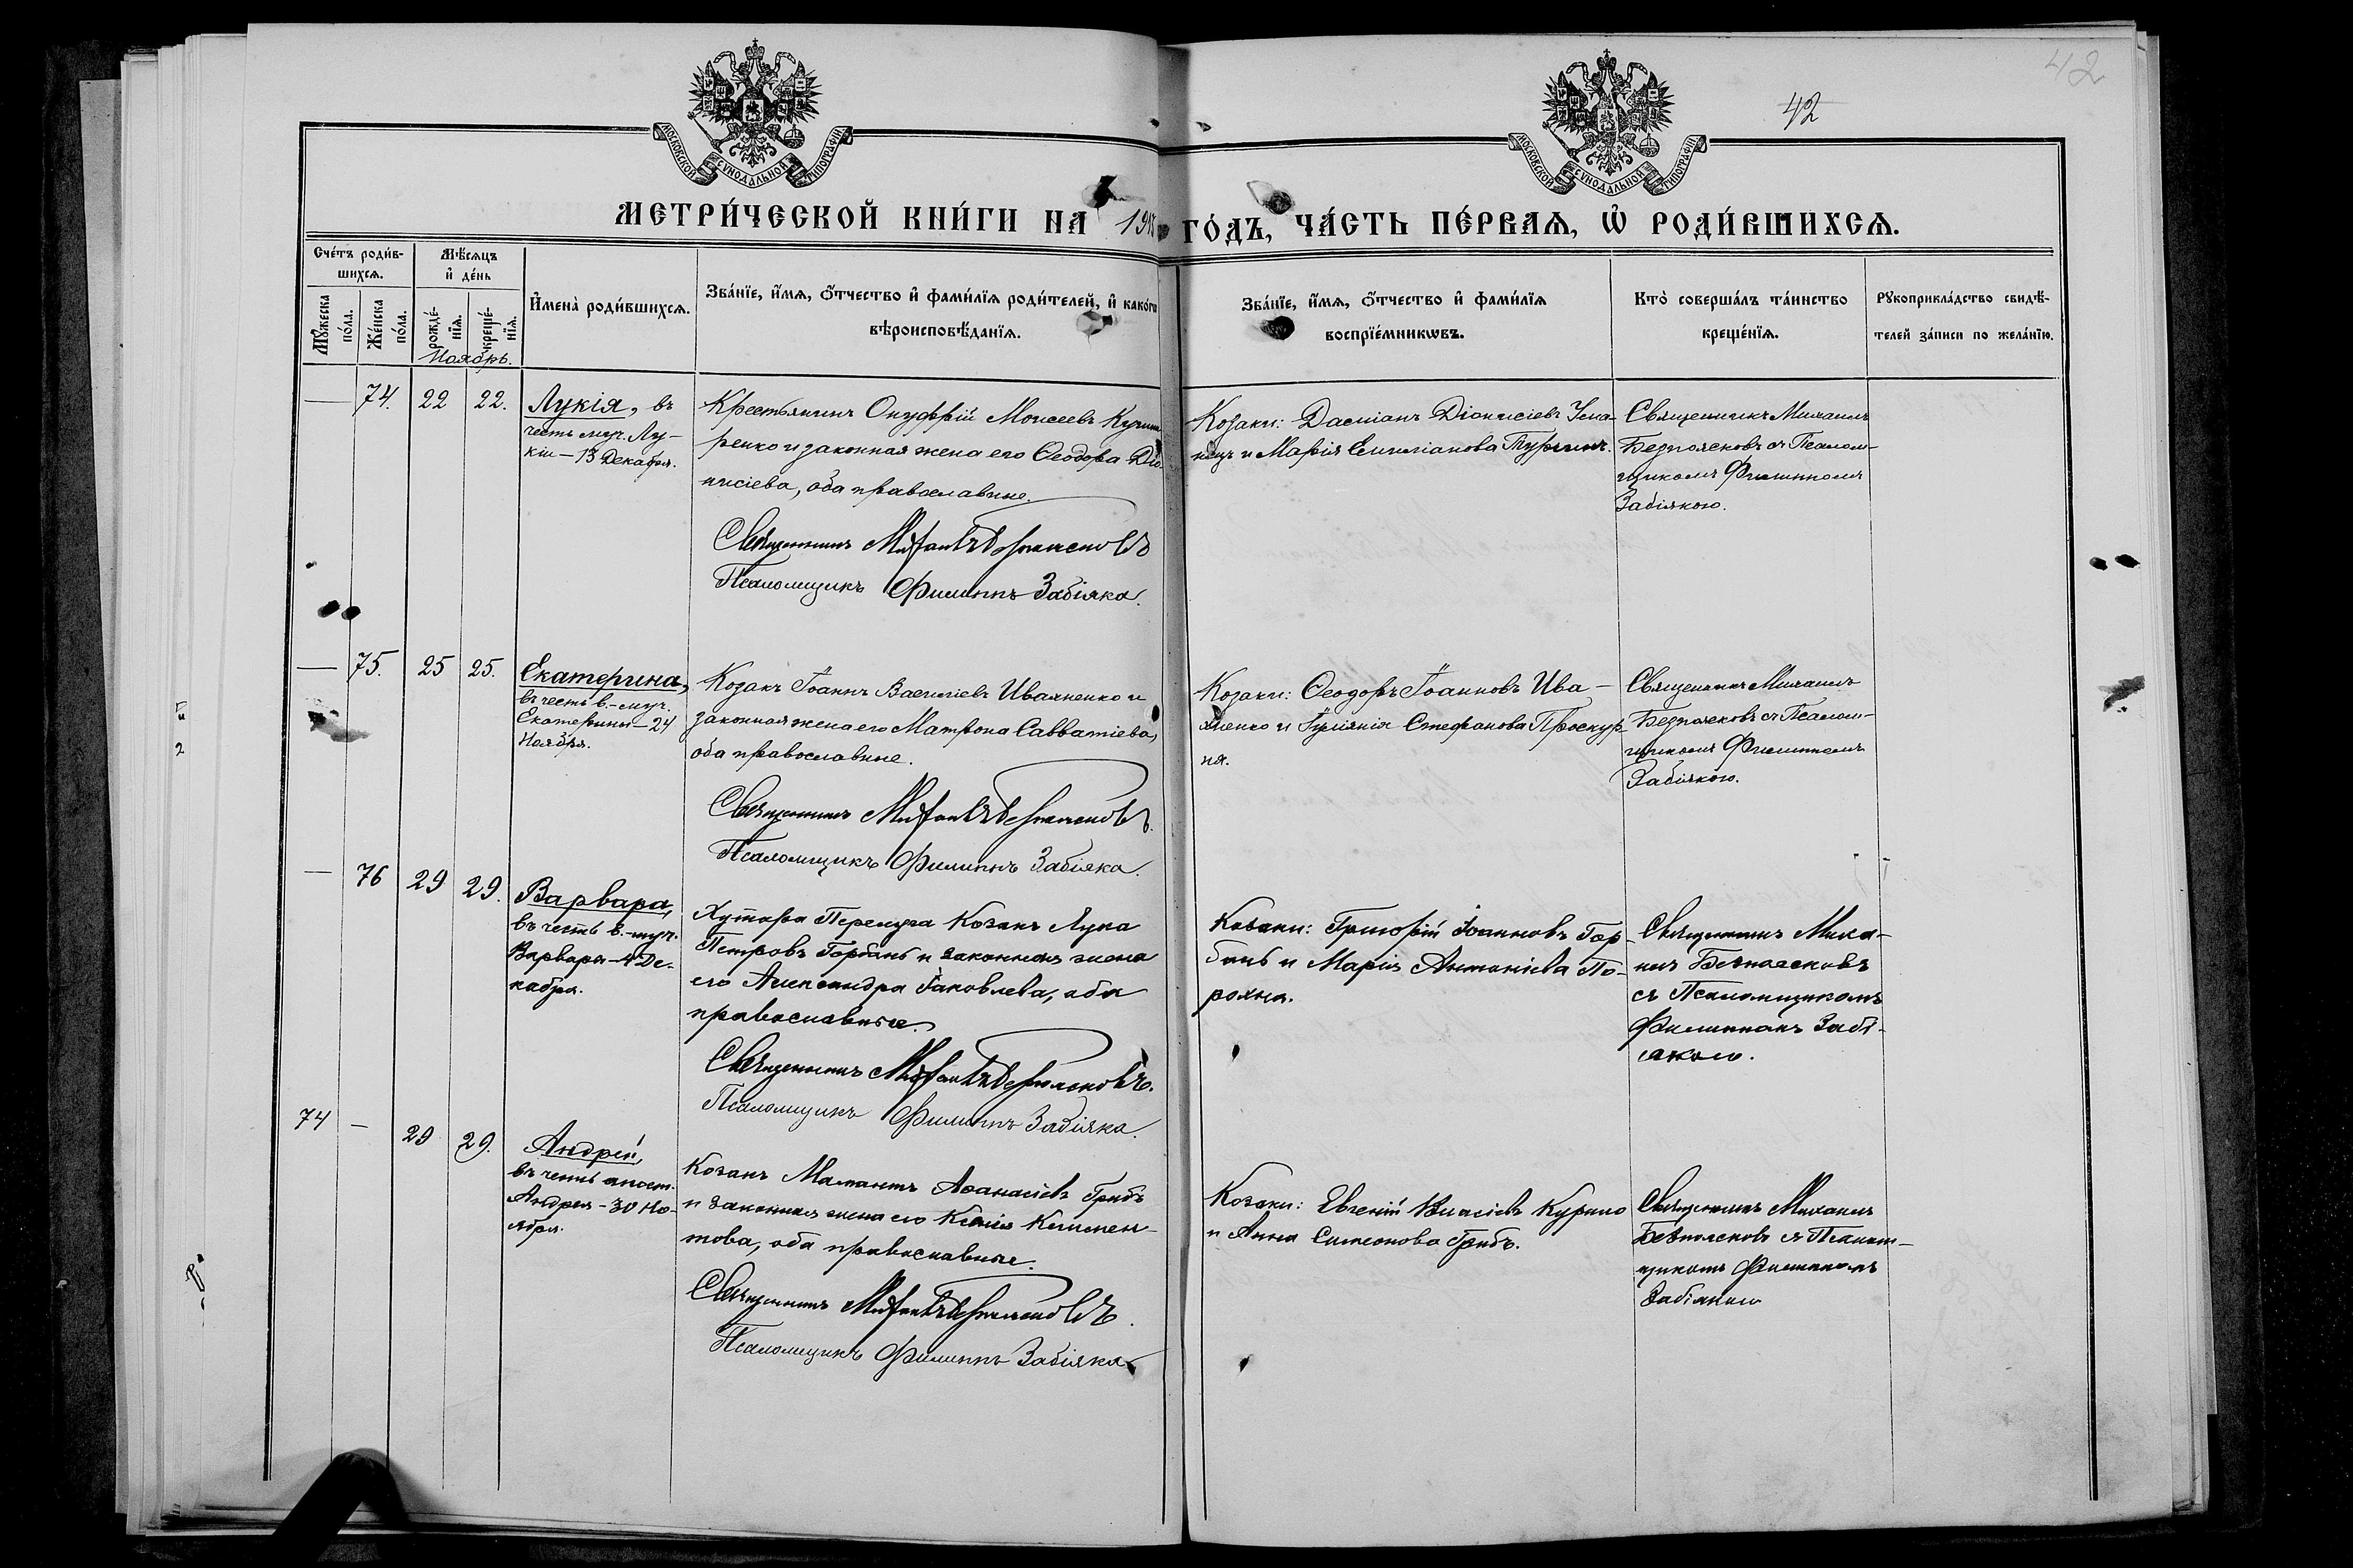 42
42
МОСКОВСКОЙ СѴНОДАЛЬНОЙ ТИПОГРАФІИ
МОСКОВСКОЙ СѴНОДАЛЬНОЙ ТИПОГРАФІИ
МЕТРИ́ЧЕСКОЙ КНИ́ГИ НА ГО́ДЪ, ЧА́СТЬ ПЕ́РВАѦ, Ѡ҆ РОДИ́ВШИХСѦ.
Сче́тъ роди́в-
шихсѧ.
Мꙋ́жеска
по́ла.
Же́нска
по́ла.
Мѣ́сѧцъ
и҆ де́нь
рожде́-
нїѧ.
креще́-
нїѧ.
И҆мена̀ роди́вшихсѧ.
Зва́нїе, и҆́мѧ, ѻ҆́тчество и҆ фами́лїѧ роди́телей, и҆ како́гѡ
вѣроисповѣ́данїѧ.
Зва́нїе, и҆́мѧ, ѻ҆́тчество и҆ фами́лїѧ
воспрїе́мникѡвъ.
Кто̀ соверша́лъ та́инство
креще́нїѧ.
Рꙋкоприкла́дство свидѣ́-
телей за́писи по жела́нїю.
Ноябрь.
— 74. 22 22.
Лукія, въ
честь муч. Лу-
кіи – 13 Декабря.
Крестьянинъ Онуфрій Моисеевъ
ренко и законная жена его Ѳеодора Діо
нисіева, оба православные.
Священникъ Михаилъ Безпоясковъ
Псаломщикъ Филиппъ Забіяка.
Козаки: Даміанъ Діонисіевъ
и Марія Емиліанова
Священникъ Михаилъ
Безпоясковъ съ Псалом-
щикомъ Филиппомъ
Забіякою.
— 75. 25 25.
Екатерина,
въ честь в.-муч.
Екатерины – 24
Ноября.
Козакъ Іоаннъ Василіевъ Иваненко и
законная жена его Матрона Савватіева,
оба православные.
Священникъ Михаилъ Безпоясковъ.
Псаломщикъ Филиппъ Забіяка.
Козаки: Ѳеодоръ Іоанновъ Ива-
ненко и Іуліанія Стефанова Проскур-
ня.
Священникъ Михаилъ
Безпоясковъ съ Псалом-
щикомъ Филиппомъ
Забіякою.
— 76 29 29.
Варвара,
въ честь в.-муч.
Варвары – 4 Де-
кабря.
Хутора Козакъ Лука
Петровъ Горбань и законная жена
его Александра Іаковлева, оба
православные.
Священникъ Михаилъ Безпоясковъ.
Псаломщикъ Филиппъ Забіяка.
Козаки: Григорій Іоанновъ Гор-
бань и Марія Антоніева По-
рохня.
Священникъ Миха-
илъ Безпоясковъ
съ Псаломщикомъ
Филиппомъ Забі-
якою.
74 — 29 29.
Андрей,
въ честь апост.
Андрея – 30 Но-
ября.
Козакъ Мамантъ Аѳанасіевъ Грибъ
и законная жена его Ксенія Климен-
това, оба православные.
Священникъ Михаилъ Безпоясковъ.
Псаломщикъ Филиппъ Забіяка
Козаки: Евгеній Власіевъ Курило
и Анна Симеонова Грибъ.
Священникъ Михаилъ
Безпоясковъ съ Псалом-
щикомъ Филиппомъ
Забіякою